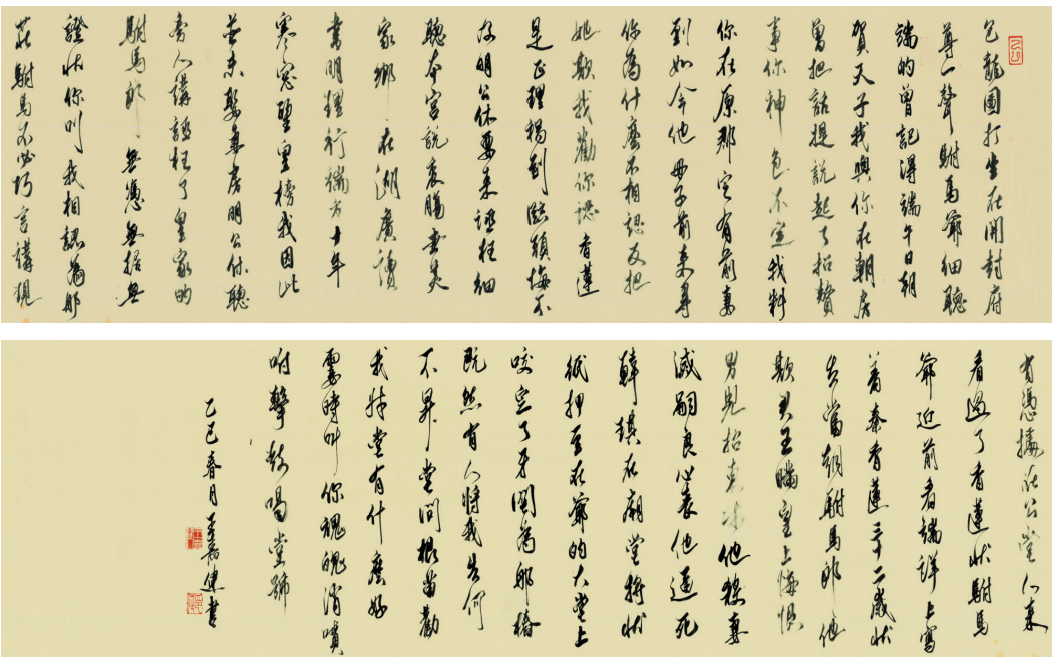 包龍圖打坐在開封府
尊一聲駙馬爺細聽
端的曾記得端午日朝
賀天子我與你在朝房
曾把話提說起了招贅
事你神色不定我料
你在原郡定有前妻
到如今他母子前來尋
你為什麼不相認反把
她欺我勸你認香蓮
是正理禍到臨頭悔不
及明公休要來誆枉細
聽本宮說衷腸
家鄉在湖廣讀
書明理行端方十年
寒窗皇榜我因此
並未娶妻房明公休聽
旁人講誆枉了皇家的
駙馬郎無憑無據無
證狀你叫我相認為那
莊駙馬不必巧言講現
有憑據在公堂人來
看過了香蓮狀駙馬
爺近前看端詳上寫
着秦香蓮三十二歲狀
告當朝駙馬郎他
欺君王瞞皇上悔婚
男兒招東床他殺妻
滅嗣良心喪他逼死
韓琪在廟堂將狀
紙押至在爺的大堂上
咬定了牙關為那樁
既然有人將我告何
不昇堂問根苗勸
我昇堂有什麼好
霎時叫你魂魄消噴
咐擊鼓喝堂號
乙巳春月王書